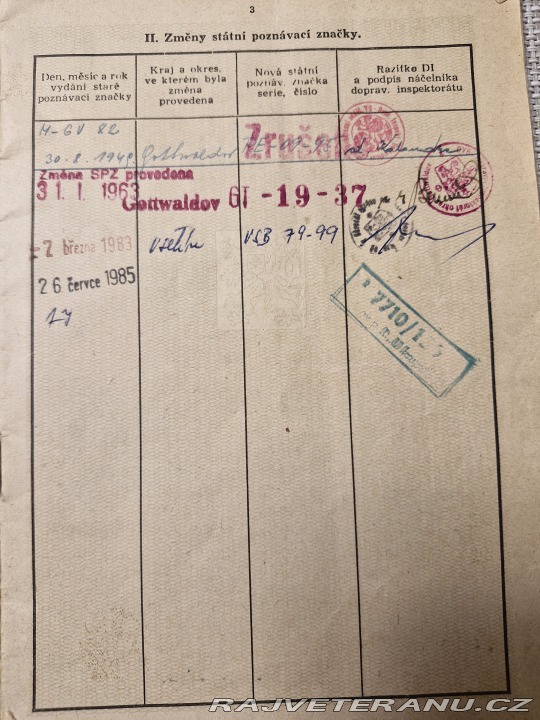 3
II. Změny státní poznávací značky.
Den, měsíc a rok
vydání staré
poznávací značky
Kraj a okres,
ve kterém byla
změna
provedena
Nová státní
poznáv. značka
serie, číslo
Razítko DI
a podpis náčelníka
doprav. inspektorátu
H-GV 82
30. 8. 1949 Gottwaldov
Zrušen
Změna SPZ provedena
31. I. 1963
Gottwaldov GT-19-37
-7 března 1983
Vsetín
VSB 79-99
26 července 1985
17
7710/1
RAJVETERANU.CZ